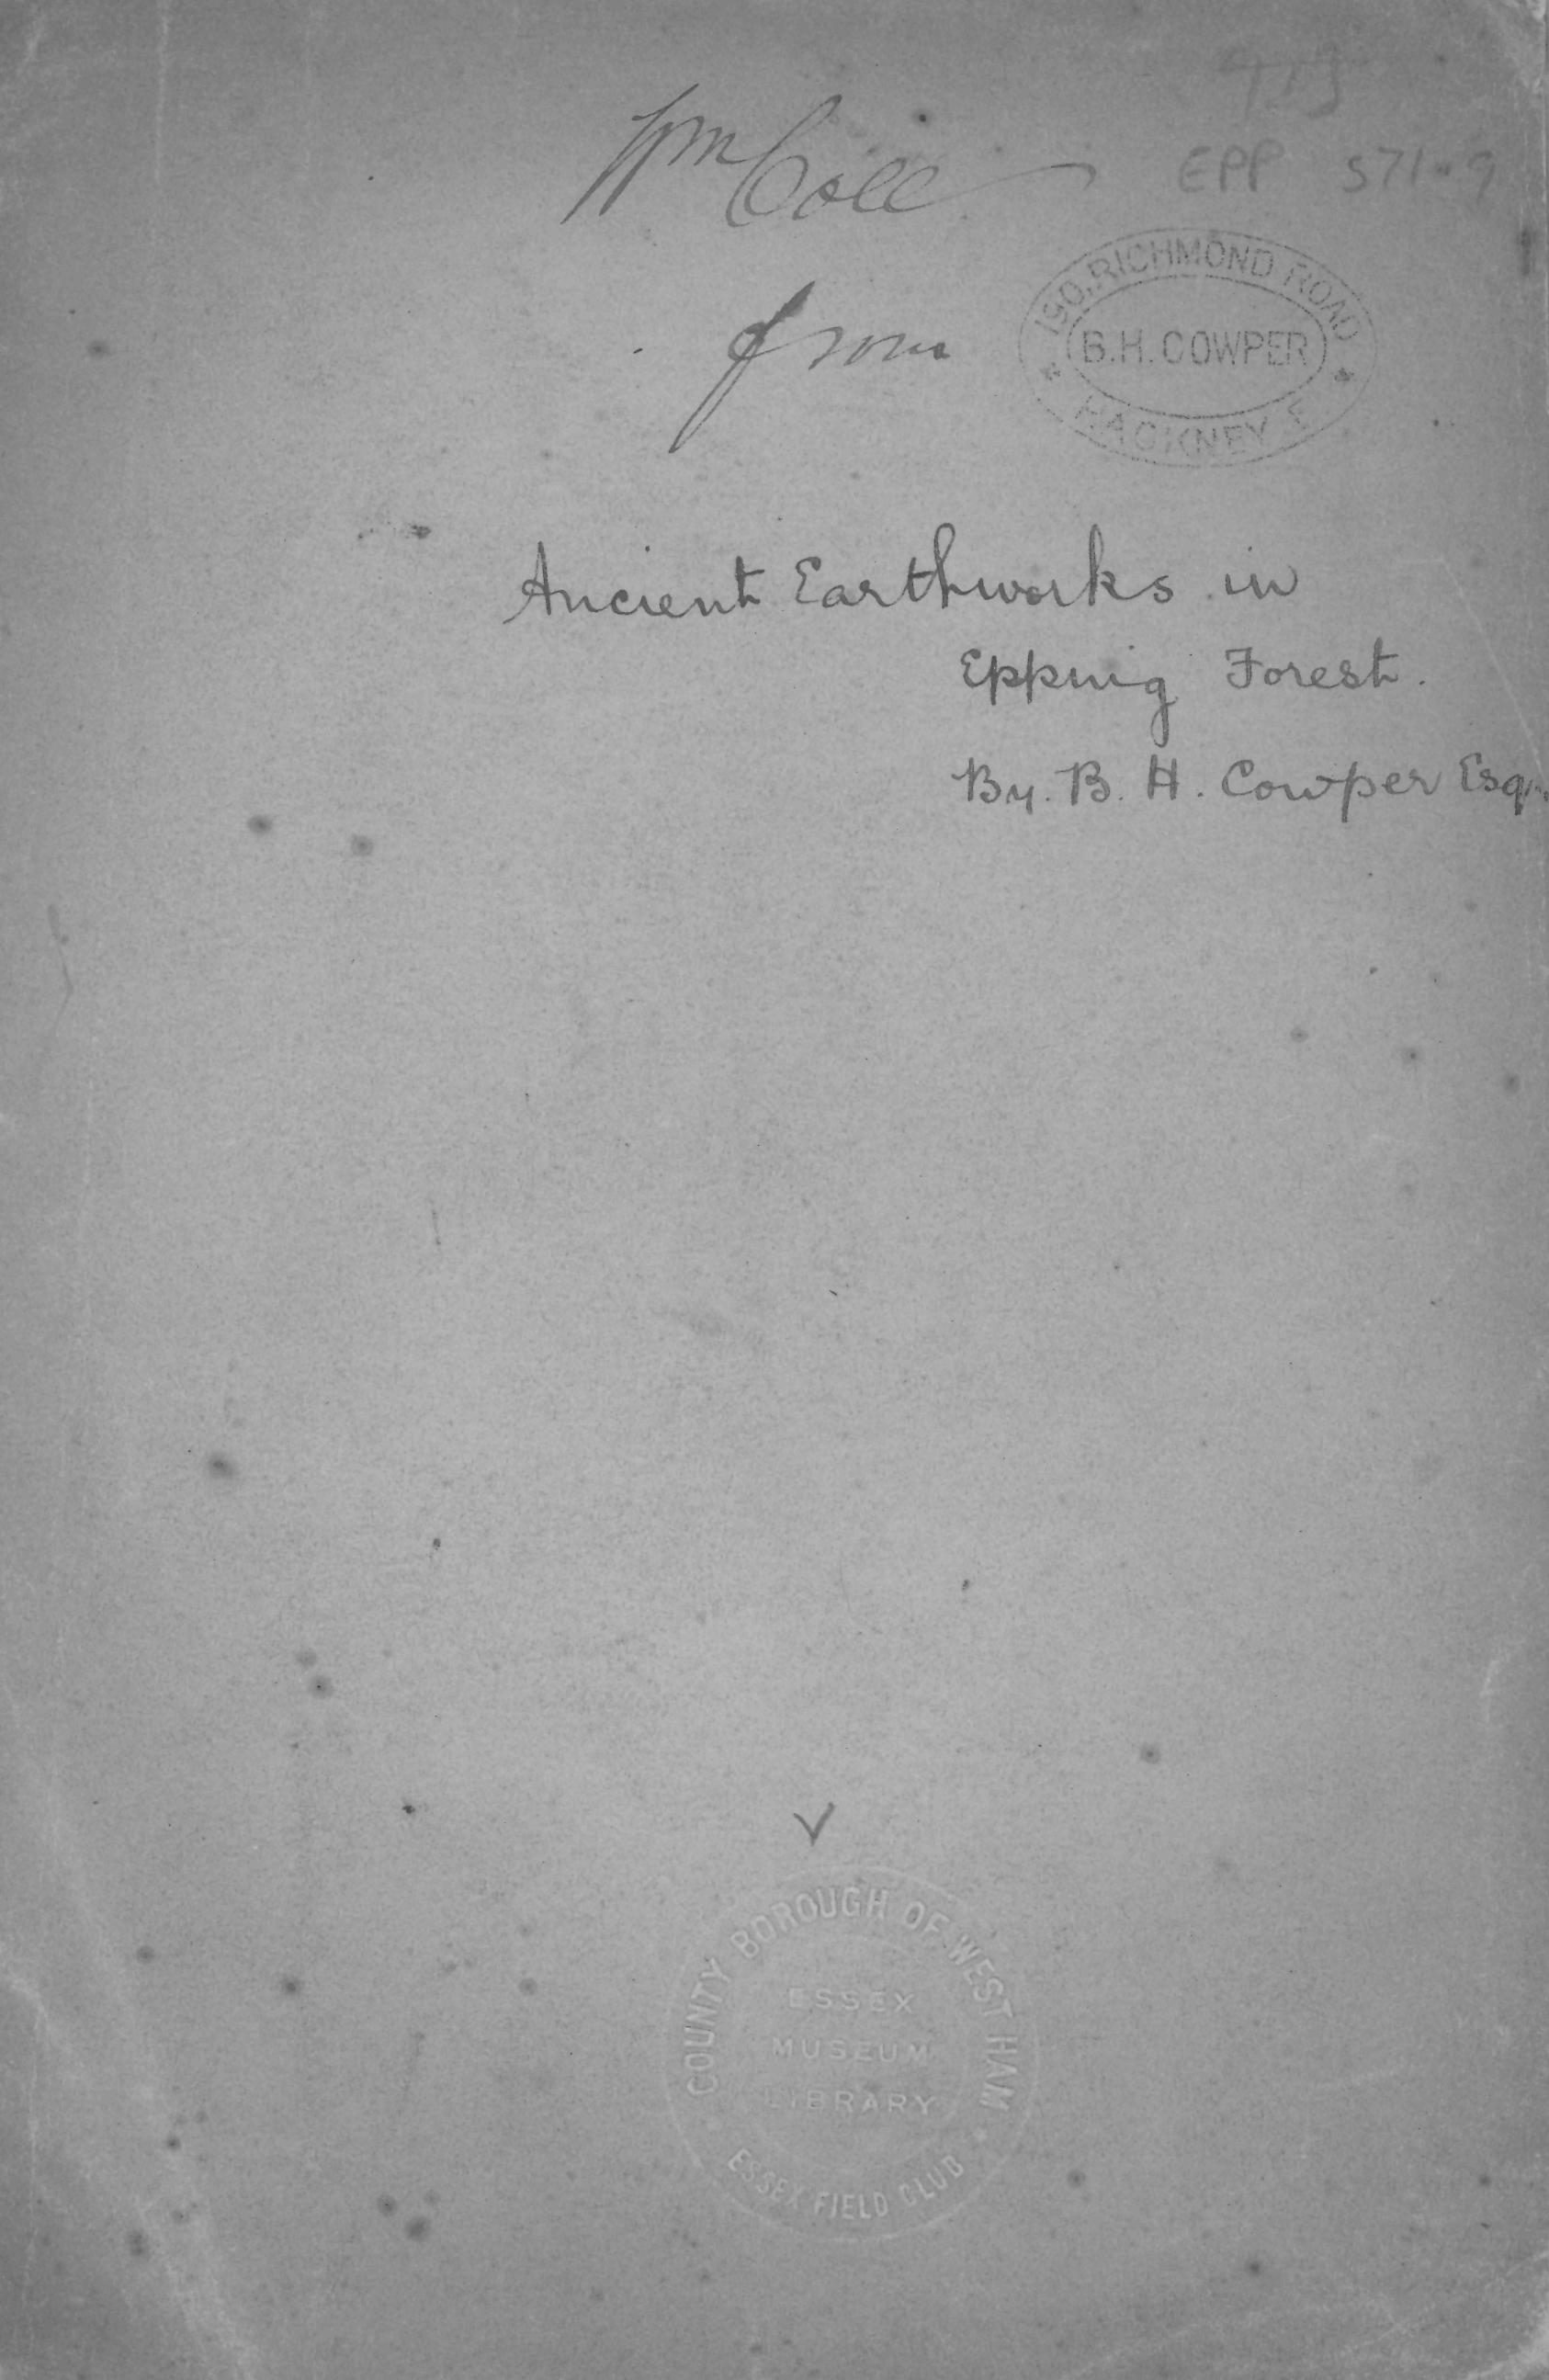 Wm Cole
EPP 571.9
from
190, RICHMOND ROAD
B.H. COWPER
HACKNEY E
Ancient Earthworks in
Epping Forest.
By. B. H. Cowper Esq
COUNTY BOROUGH OF WEST HAM
ESSEX
MUSEUM
LIBRARY
ESSEX FIELD CLUB